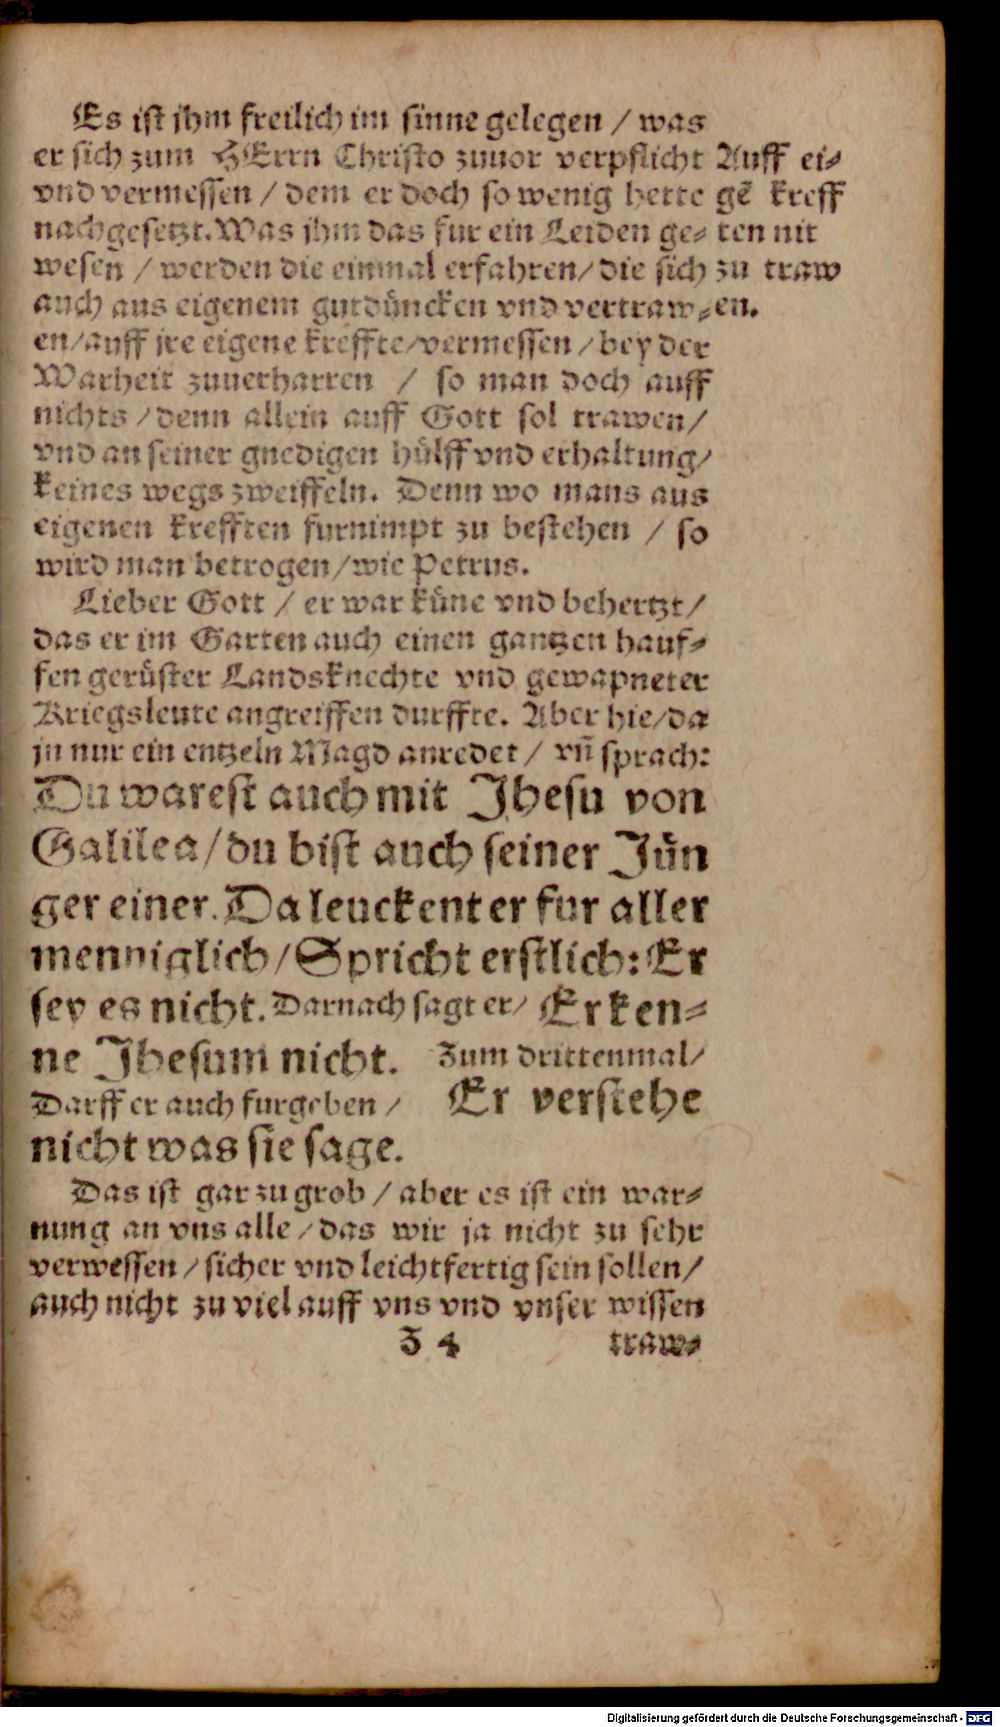 Es ist jhm freilich im sinne gelegen / was
er sich zum HErrn Christo zuuor verpflicht
vnd vermessen / dem er doch so wenig hette
nachgesetzt. Was jhm das fur ein Leiden ge-
wesen / werden die einmal erfahren / die sich
auch aus eigenem gutdüncken vnd vertraw-
en / auff jre eigene kreffte / vermessen / bey der
Warheit zuuerharren / so man doch auff
nichts / denn allein auff Gott sol trawen /
vnd an seiner gnedigen hülff vnd erhaltung /
keines wegs zweiffeln. Denn wo mans aus
eigenen krefften furnimpt zu bestehen / so
wird man betrogen / wie Petrus.
Auff ei-
gē kreff
ten nit
zu traw
en.
Lieber Gott / er war küne vnd behertzt /
das er im Garten auch einen gantzen hauf-
fen gerüster Landsknechte vnd gewapneter
Kriegsleute angreiffen durffte. Aber hie / da
jn nur ein entzeln Magd anredet / vñ sprach:
Du warest auch mit Jhesu von
Galilea / du bist auch seiner Jün
ger einer. Da leuckent er fur aller
menniglich / Spricht erstlich: Er
sey es nicht. Darnach sagt er / Er ken-
ne Jhesum nicht. Zum drittenmal /
Darff er auch furgeben / Er verstehe
nicht was sie sage.
Das ist gar zu grob / aber es ist ein war-
nung an vns alle / das wir ja nicht zu sehr
verwessen / sicher vnd leichtfertig sein sollen /
auch nicht zu viel auff vns vnd vnser wissen
Z 4 traw-
Digitalisierung gefördert durch die Deutsche Forschungsgemeinschaft - DFG